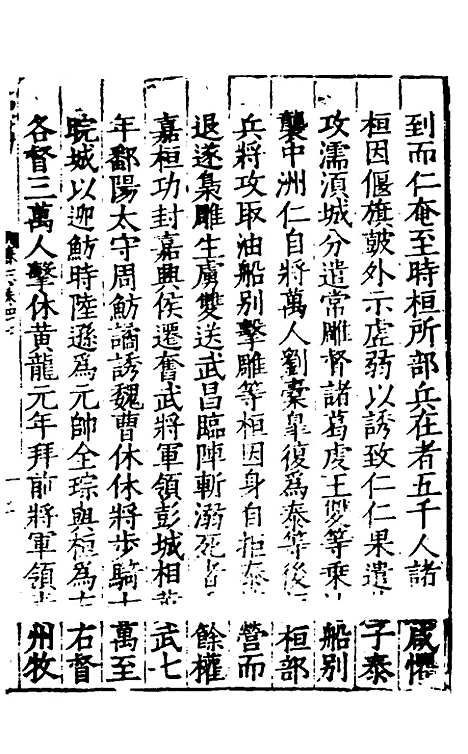 到而仁奄至時桓所部兵在者五千人諸
桓因偃旗皷外示虛弱以誘致仁仁果遣
攻濡湏城分遣常雕督諸葛虔王雙等乘
襲中洲仁自將萬人劉槖臯復爲泰等後
兵將攻取油船別擊雕等桓因身自拒泰
退遂梟雕生虜雙送武昌臨陣斬溺死者
嘉桓功封嘉興侯遷奮武將軍領彭城相
年鄱陽太守周魴譎誘魏曹休休將步騎十
晥城以迎魴時陸遜爲元帥全琮與桓爲
各督三萬人擊休黄龍元年拜前將軍領
咸懼
子泰
船別
桓部
營而
餘權
武七
萬至
右督
州牧